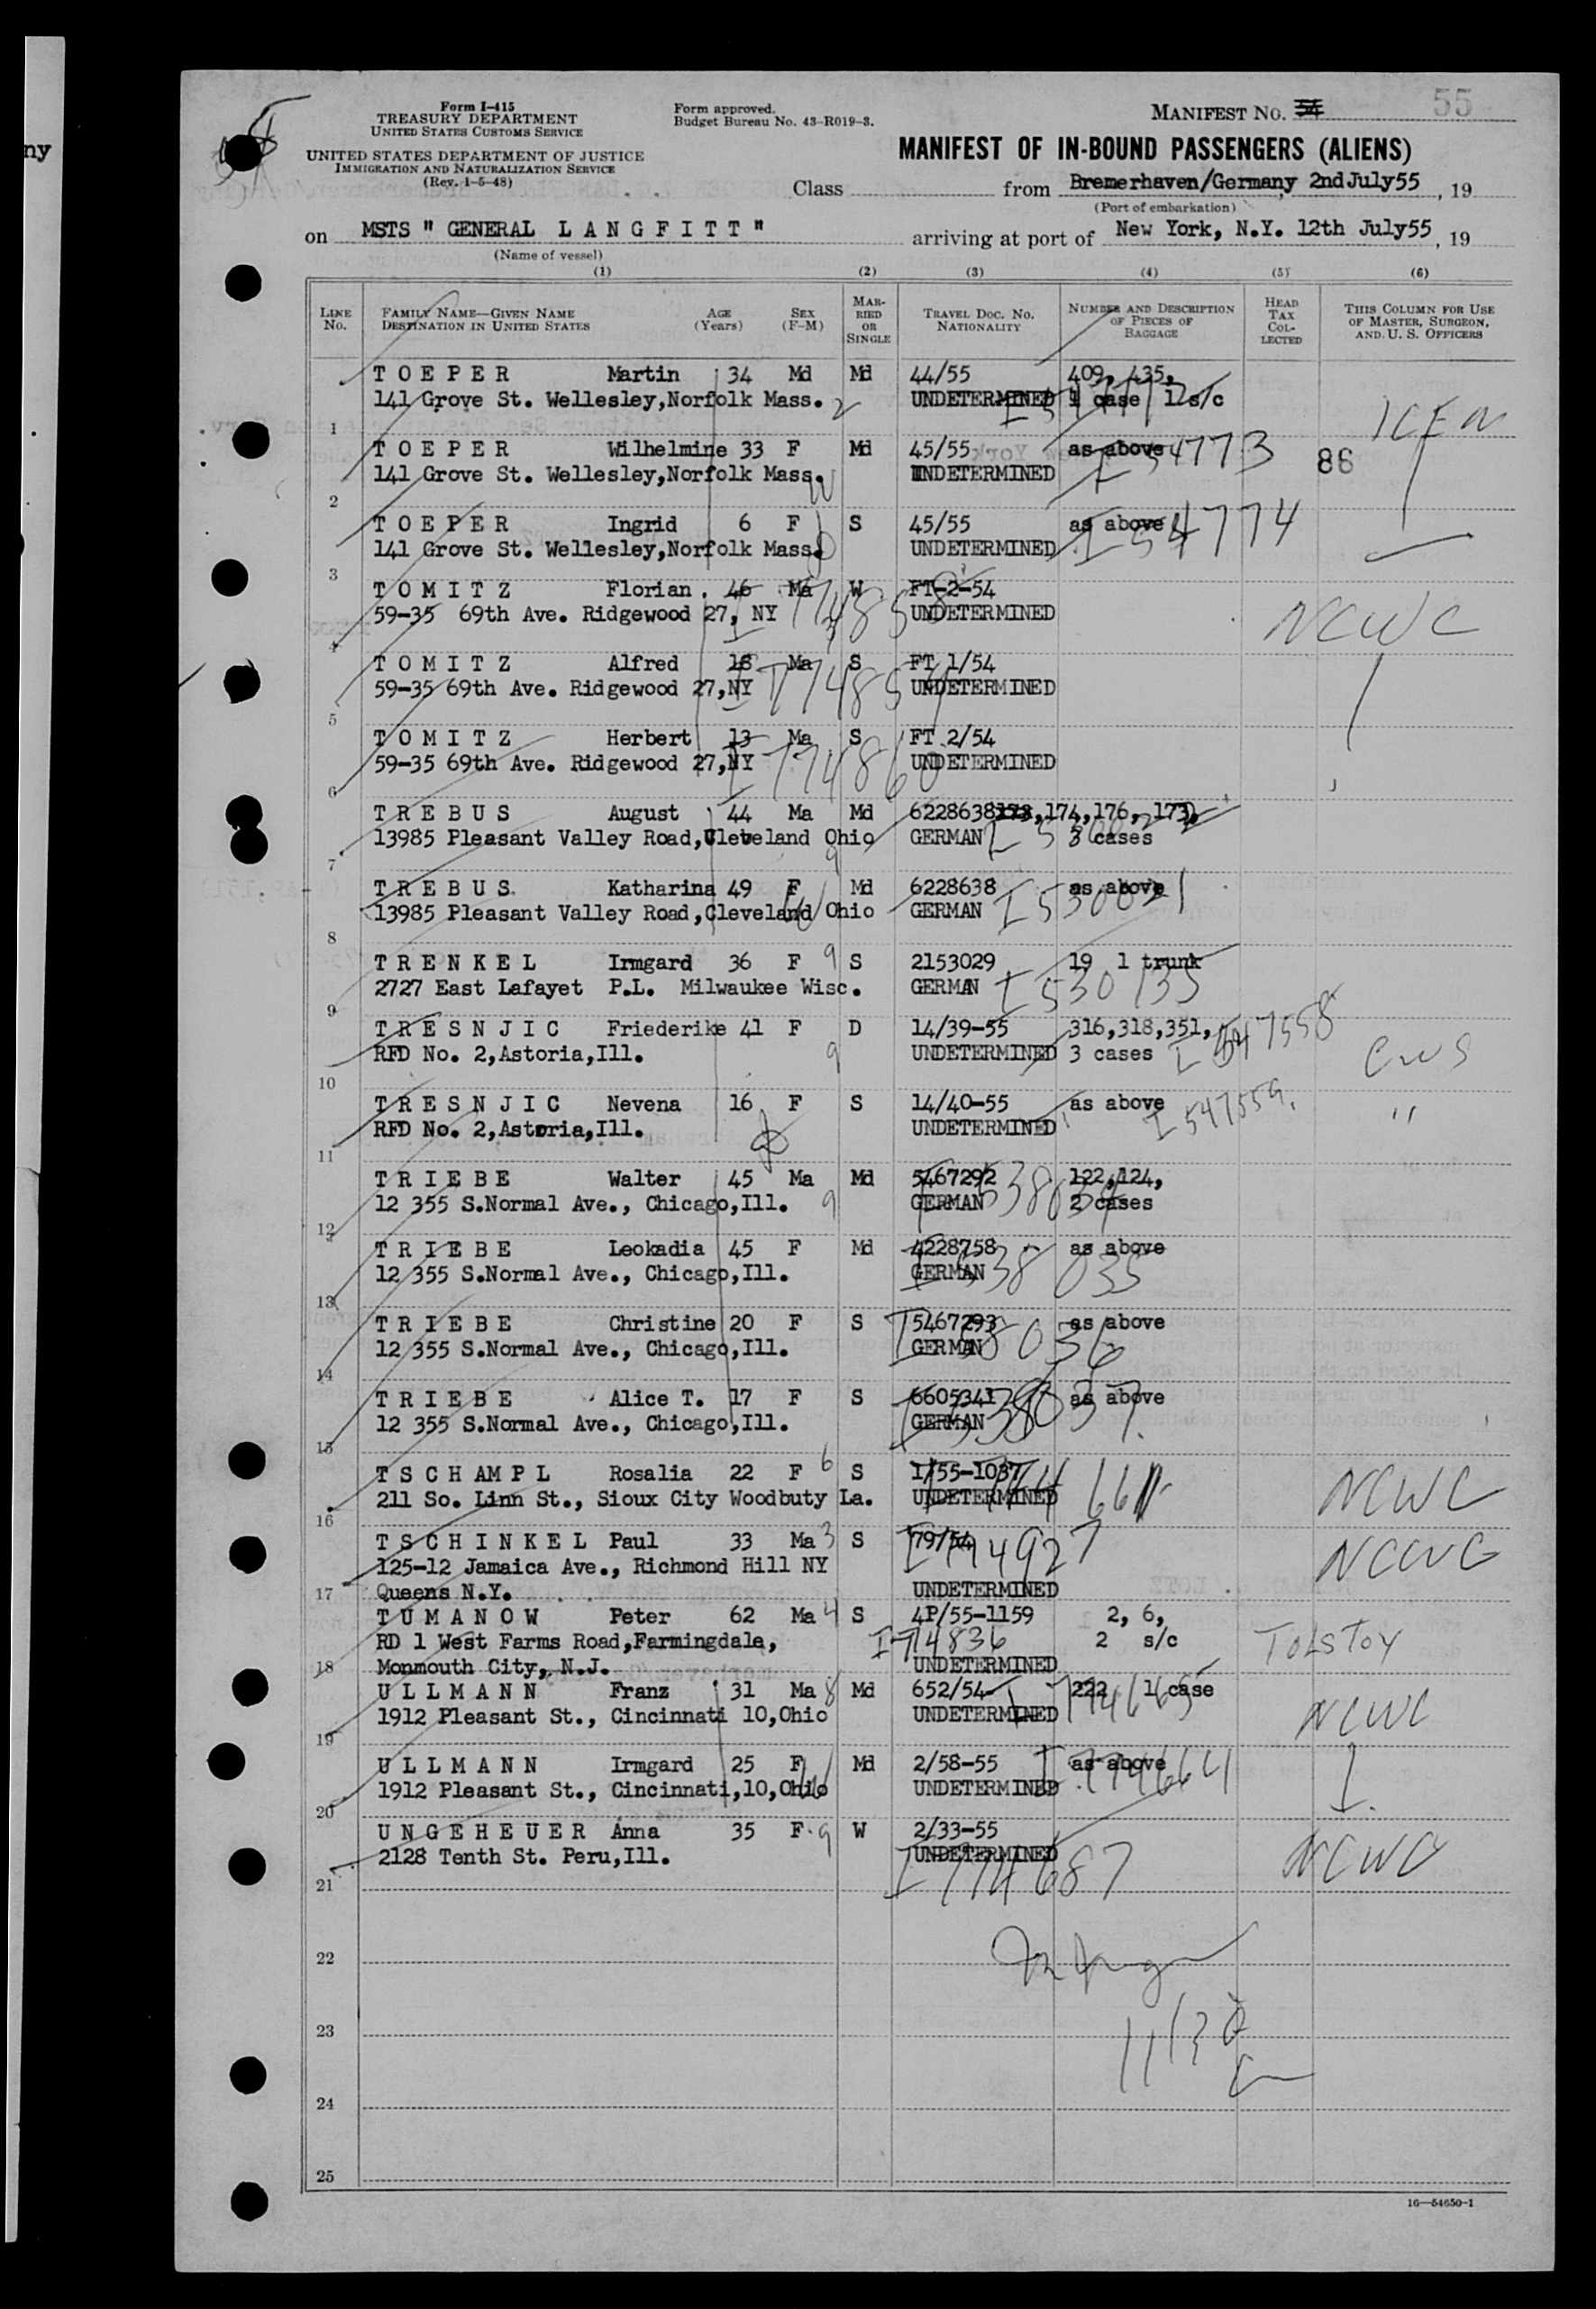 ny
Form I-415
TREASURY DEPARTMENT
UNITED STATES CUSTOMS SERVICE
UNITED STATES DEPARTMENT OF JUSTICE
IMMIGRATION AND NATURALIZATION SERVICE
(Rev. 1-5-48)
Form approved.
Budget Bureau No. 43-R019-3.
MANIFEST NO. 54 55
MANIFEST OF IN-BOUND PASSENGERS (ALIENS)
Class from Bremerhaven/Germany, 2nd July 55, 19
(Port of embarkation)
on MSTS " GENERAL L A N G F I T T " arriving at port of New York, N.Y. 12th July 55, 19
(Name of vessel)
(1) (2) (3) (4) (5) (6)
LINE No. FAMILY NAME—GIVEN NAME DESTINATION IN UNITED STATES AGE (Years) SEX (F-M) MARRIED OR SINGLE TRAVEL DOC. NO. NATIONALITY NUMBER AND DESCRIPTION OF PIECES OF BAGGAGE HEAD TAX COLLECTED THIS COLUMN FOR USE OF MASTER, SURGEON, AND U. S. OFFICERS
T O E P E R Martin 34 Md Md 44/55 409, 435,
141 Grove St. Wellesley,Norfolk Mass. 2 UNDETERMINED 1 case 1 s/c
1
T O E P E R Wilhelmine 33 F Md 45/55 as above I 54773 86
141 Grove St. Wellesley,Norfolk Mass. UNDETERMINED
2
T O E P E R Ingrid 6 F S 45/55 as above I 54774
141 Grove St. Wellesley,Norfolk Mass. UNDETERMINED
3
T O M I T Z Florian. 46 Ma W FT-2-54
59-35 69th Ave. Ridgewood 27, NY UNDETERMINED NCWC
4
T O M I T Z Alfred 18 Ma S FT 1/54
59-35 69th Ave. Ridgewood 27,NY UNDETERMINED
5
T O M I T Z Herbert 13 Ma S FT 2/54
59-35 69th Ave. Ridgewood 27,NY I 774860 UNDETERMINED
6
T R E B U S August 44 Ma Md 6228638 173,174,176, 173,
13985 Pleasant Valley Road,Cleveland Ohio GERMAN 3 cases
7
T R E B U S Katharina 49 F Md 6228638 as above
13985 Pleasant Valley Road,Cleveland Ohio GERMAN
8
T R E N K E L Irmgard 36 F 9 S 2153029 19 1 trunk
2727 East Lafayet P.L. Milwaukee Wisc. GERMAN I 530135
9
T R E S N J I C Friederike 41 F D 14/39-55 316,318,351, I 547558
RFD No. 2,Astoria,Ill. 9 UNDETERMINED 3 cases CWS
10
T R E S N J I C Nevena 16 F S 14/40-55 as above I 547559. "
RFD No. 2,Astoria,Ill. UNDETERMINED
11
T R I E B E Walter 45 Ma Md 5467292 122,124,
12 355 S.Normal Ave., Chicago,Ill. 9 GERMAN 2 cases
12
T R I E B E Leokadia 45 F Md 4228758 as above
12 355 S.Normal Ave., Chicago,Ill. GERMAN
13
T R I E B E Christine 20 F S 5467293 as above
12 355 S.Normal Ave., Chicago,Ill. GERMAN
14
T R I E B E Alice T. 17 F S 6605341 as above
12 355 S.Normal Ave., Chicago,Ill. GERMAN
15
T S C H AM P L Rosalia 22 F 6 S I/55-1037
211 So. Linn St., Sioux City Woodbuty La. UNDETERMINED NCWC
16
T S C H I N K E L Paul 33 Ma 3 S 79/54
125-12 Jamaica Ave., Richmond Hill NY NCWC
17 Queens N.Y. UNDETERMINED
T U M A N O W Peter 62 Ma 4 S 4P/55-1159 2, 6,
RD 1 West Farms Road,Farmingdale, I 774836 2 s/c TOLSTOY
18 Monmouth City, N.J. UNDETERMINED
U L L M A N N Franz 31 Ma 8 Md 652/54 222 1 case
1912 Pleasant St., Cincinnati 10,Ohio UNDETERMINED NCWC
19
U L L M A N N Irmgard 25 F Md 2/58-55 as above
1912 Pleasant St., Cincinnati,10,Ohio UNDETERMINED
20
U N G E H E U E R Anna 35 F 9 W 2/33-55
2128 Tenth St. Peru,Ill. UNDETERMINED NCWC
21 I 774687
22
23
24
25
16—54650-1